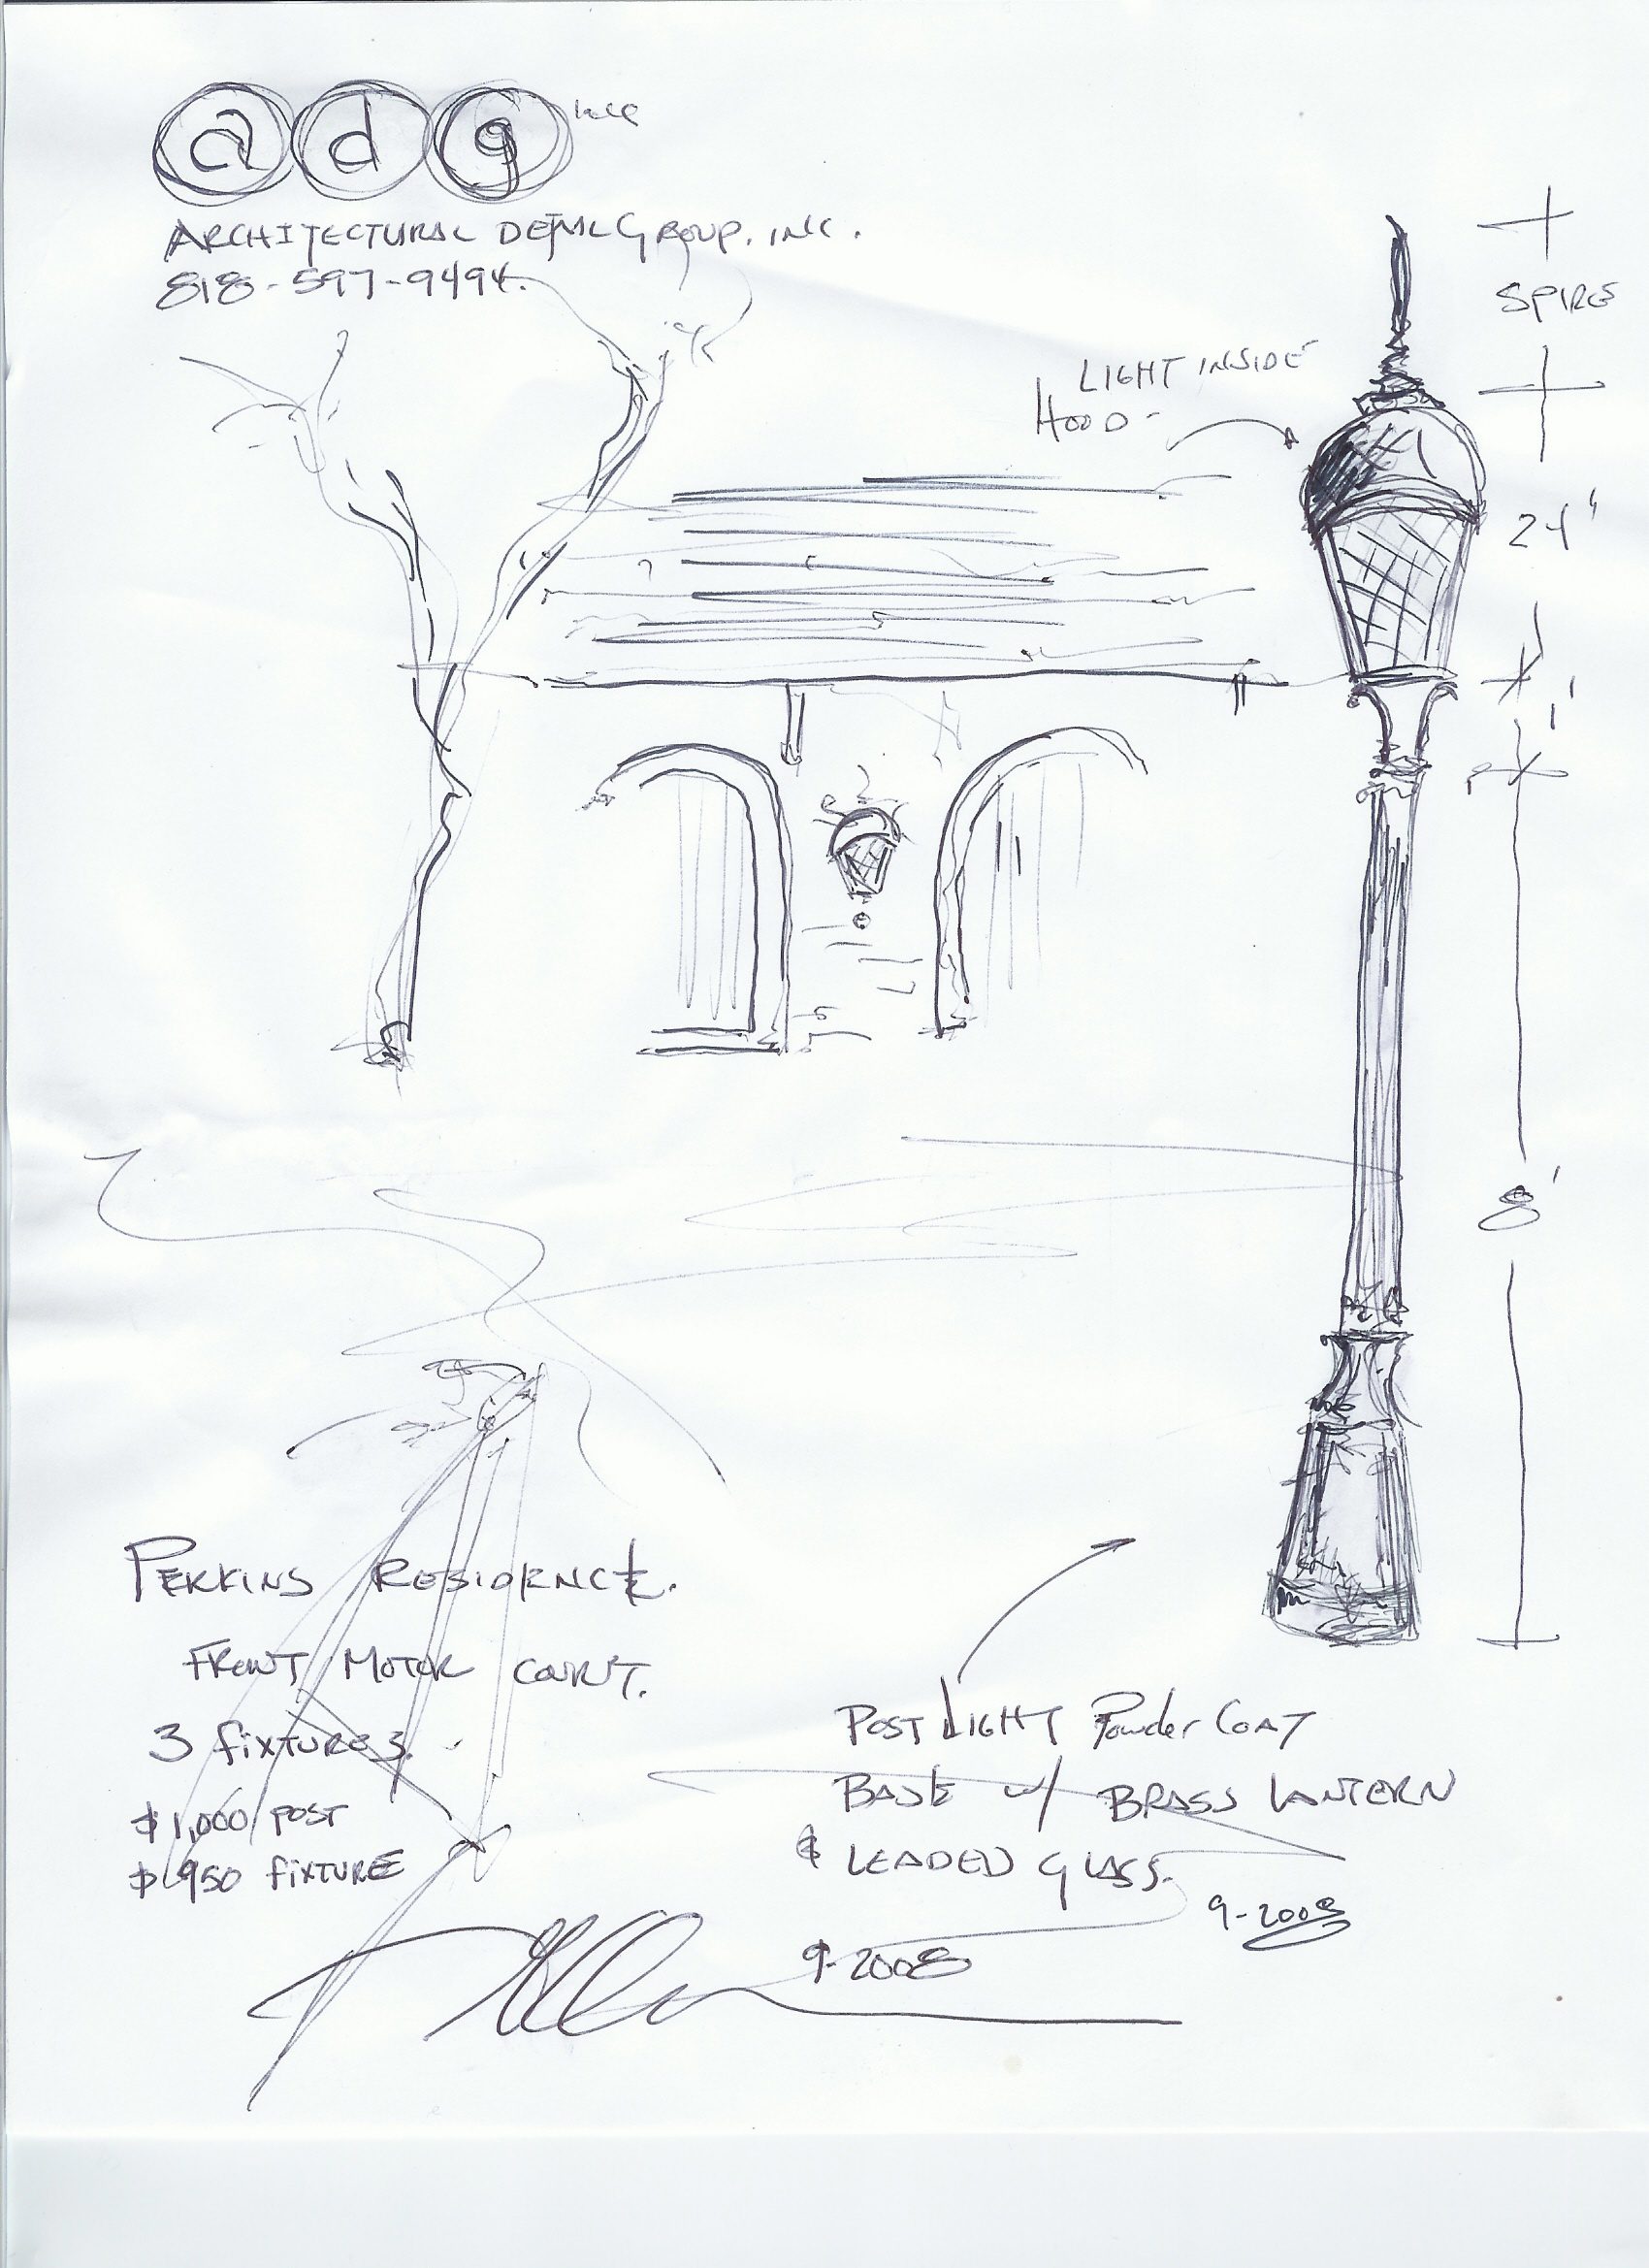 adg inc
ARCHITECTURAL DETAIL GROUP, INC.
818-597-9494.
SPIRE
LIGHT INSIDE
HOOD-
24"
1'
8'
PERKINS RESIDENCE.
FRONT MOTOR COURT.
3 fixtures.
$1,000/POST
$950 fixTURE
POST LIGHT Powder COAT
BASE w/ BRASS LANTERN
& LEADED GLASS.
9-2008
9-2008